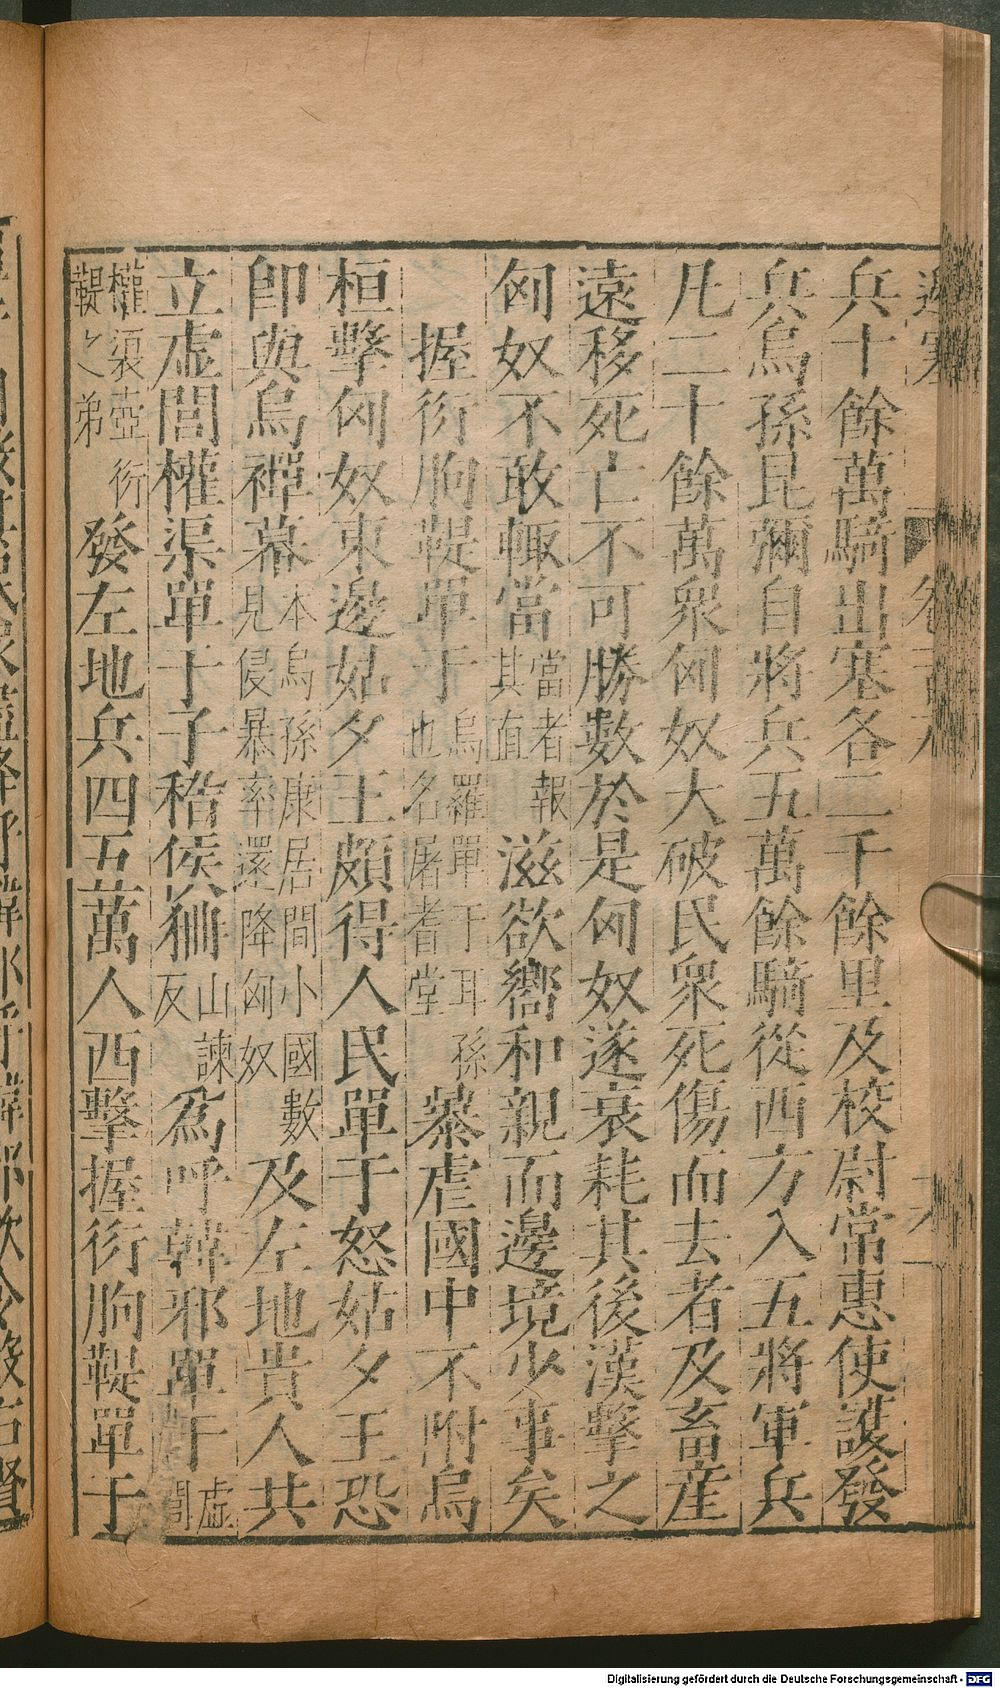 邊塞
兵十餘萬騎出塞各二千餘里及校尉常惠使護發
兵烏孫昆彌自將兵五萬餘騎從西方入五將軍兵
凡二十餘萬衆匈奴大破民衆死傷而去者及畜產
遠移死亡不可勝數於是匈奴遂衰耗其後漢擊之
匈奴不敢輙當當者報其直滋欲嚮和親而邊境少事矣
握衍朐鞮單于烏羅單于耳孫也名屠耆堂暴虐國中不附烏
桓擊匈奴東邊姑夕王頗得人民單于怒姑夕王恐
卽與烏禪幕本烏孫康居間小國數見侵暴率還降匈奴及左地貴人共
立虛閭權渠單于子稽侯㹪山諫反爲呼韓邪單于虛閭
權渠壺衍鞮之弟發左地兵四五萬人西擊握衍朐鞮單于
Digitalisierung gefördert durch die Deutsche Forschungsgemeinschaft - DFG